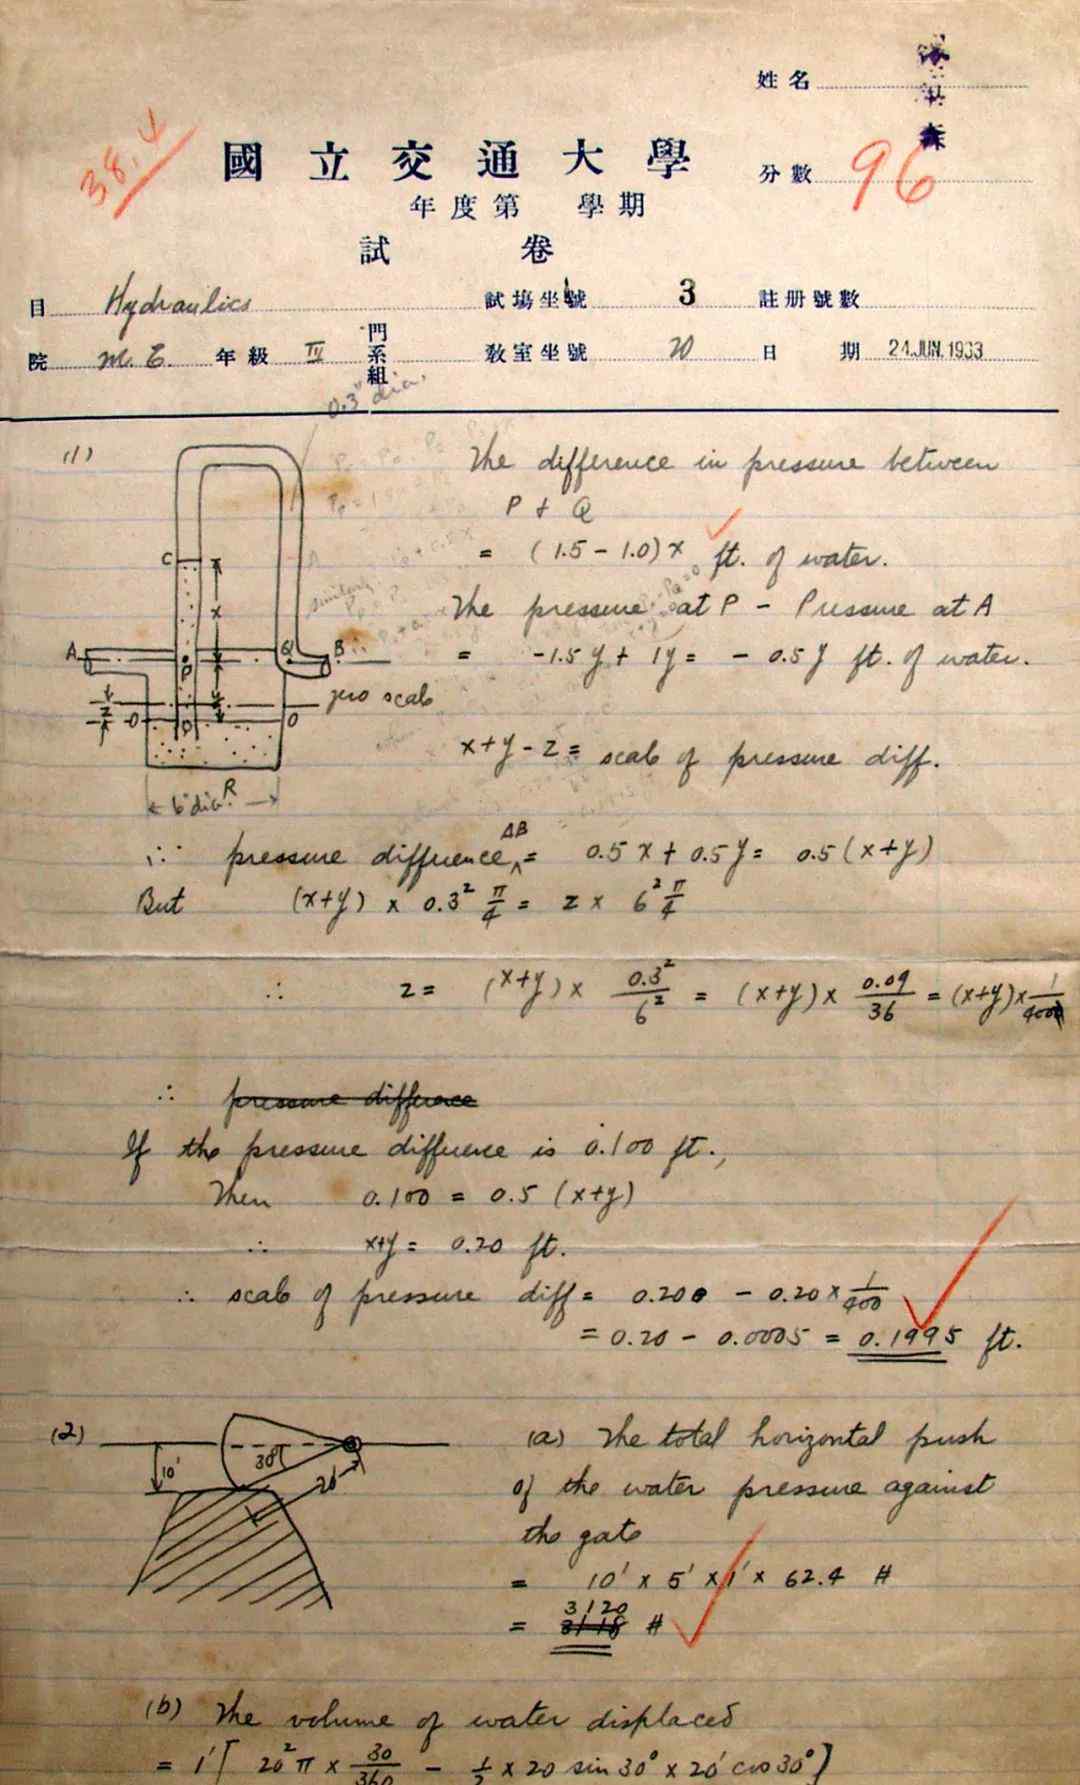 姓名
38.4
國立交通大學
分數 96
年度第 學期
試 卷
目 Hydraulics 試場坐號 3 註册號數
院 M. E. 年級 IV 門系組 教室坐號 20 日期 24.JUN.1933
0.3" dia.
(1) The difference in pressure between
P + Q
= (1.5 - 1.0) x ft. of water.
C
x
The pressure at P - Pressure at A
A P Q B
= -1.5 y + 1y = - 0.5 y ft. of water.
y
zero scale
z O O
x+y-z = scale of pressure diff.
R
6" dia.
∴ pressure difference AB = 0.5 x + 0.5 y = 0.5 (x+y)
But (x+y) × 0.3² π/4 = z × 6² π/4
∴ z = (x+y) × 0.3²/6² = (x+y) × 0.09/36 = (x+y) × 1/400
∴ pressure difference
If the pressure difference is 0.100 ft.,
Then 0.100 = 0.5 (x+y)
∴ x+y = 0.20 ft.
∴ scale of pressure diff = 0.200 - 0.20 × 1/400
= 0.20 - 0.0005 = 0.1995 ft.
(2) (a) The total horizontal push
10' 30° 20'
of the water pressure against
the gate
= 10' × 5' × 1' × 62.4 #
= 3120 #
(b) The volume of water displaced
= 1' [ 20² π × 30/360 - 1/2 × 20 sin 30° × 20' cos 30° ]